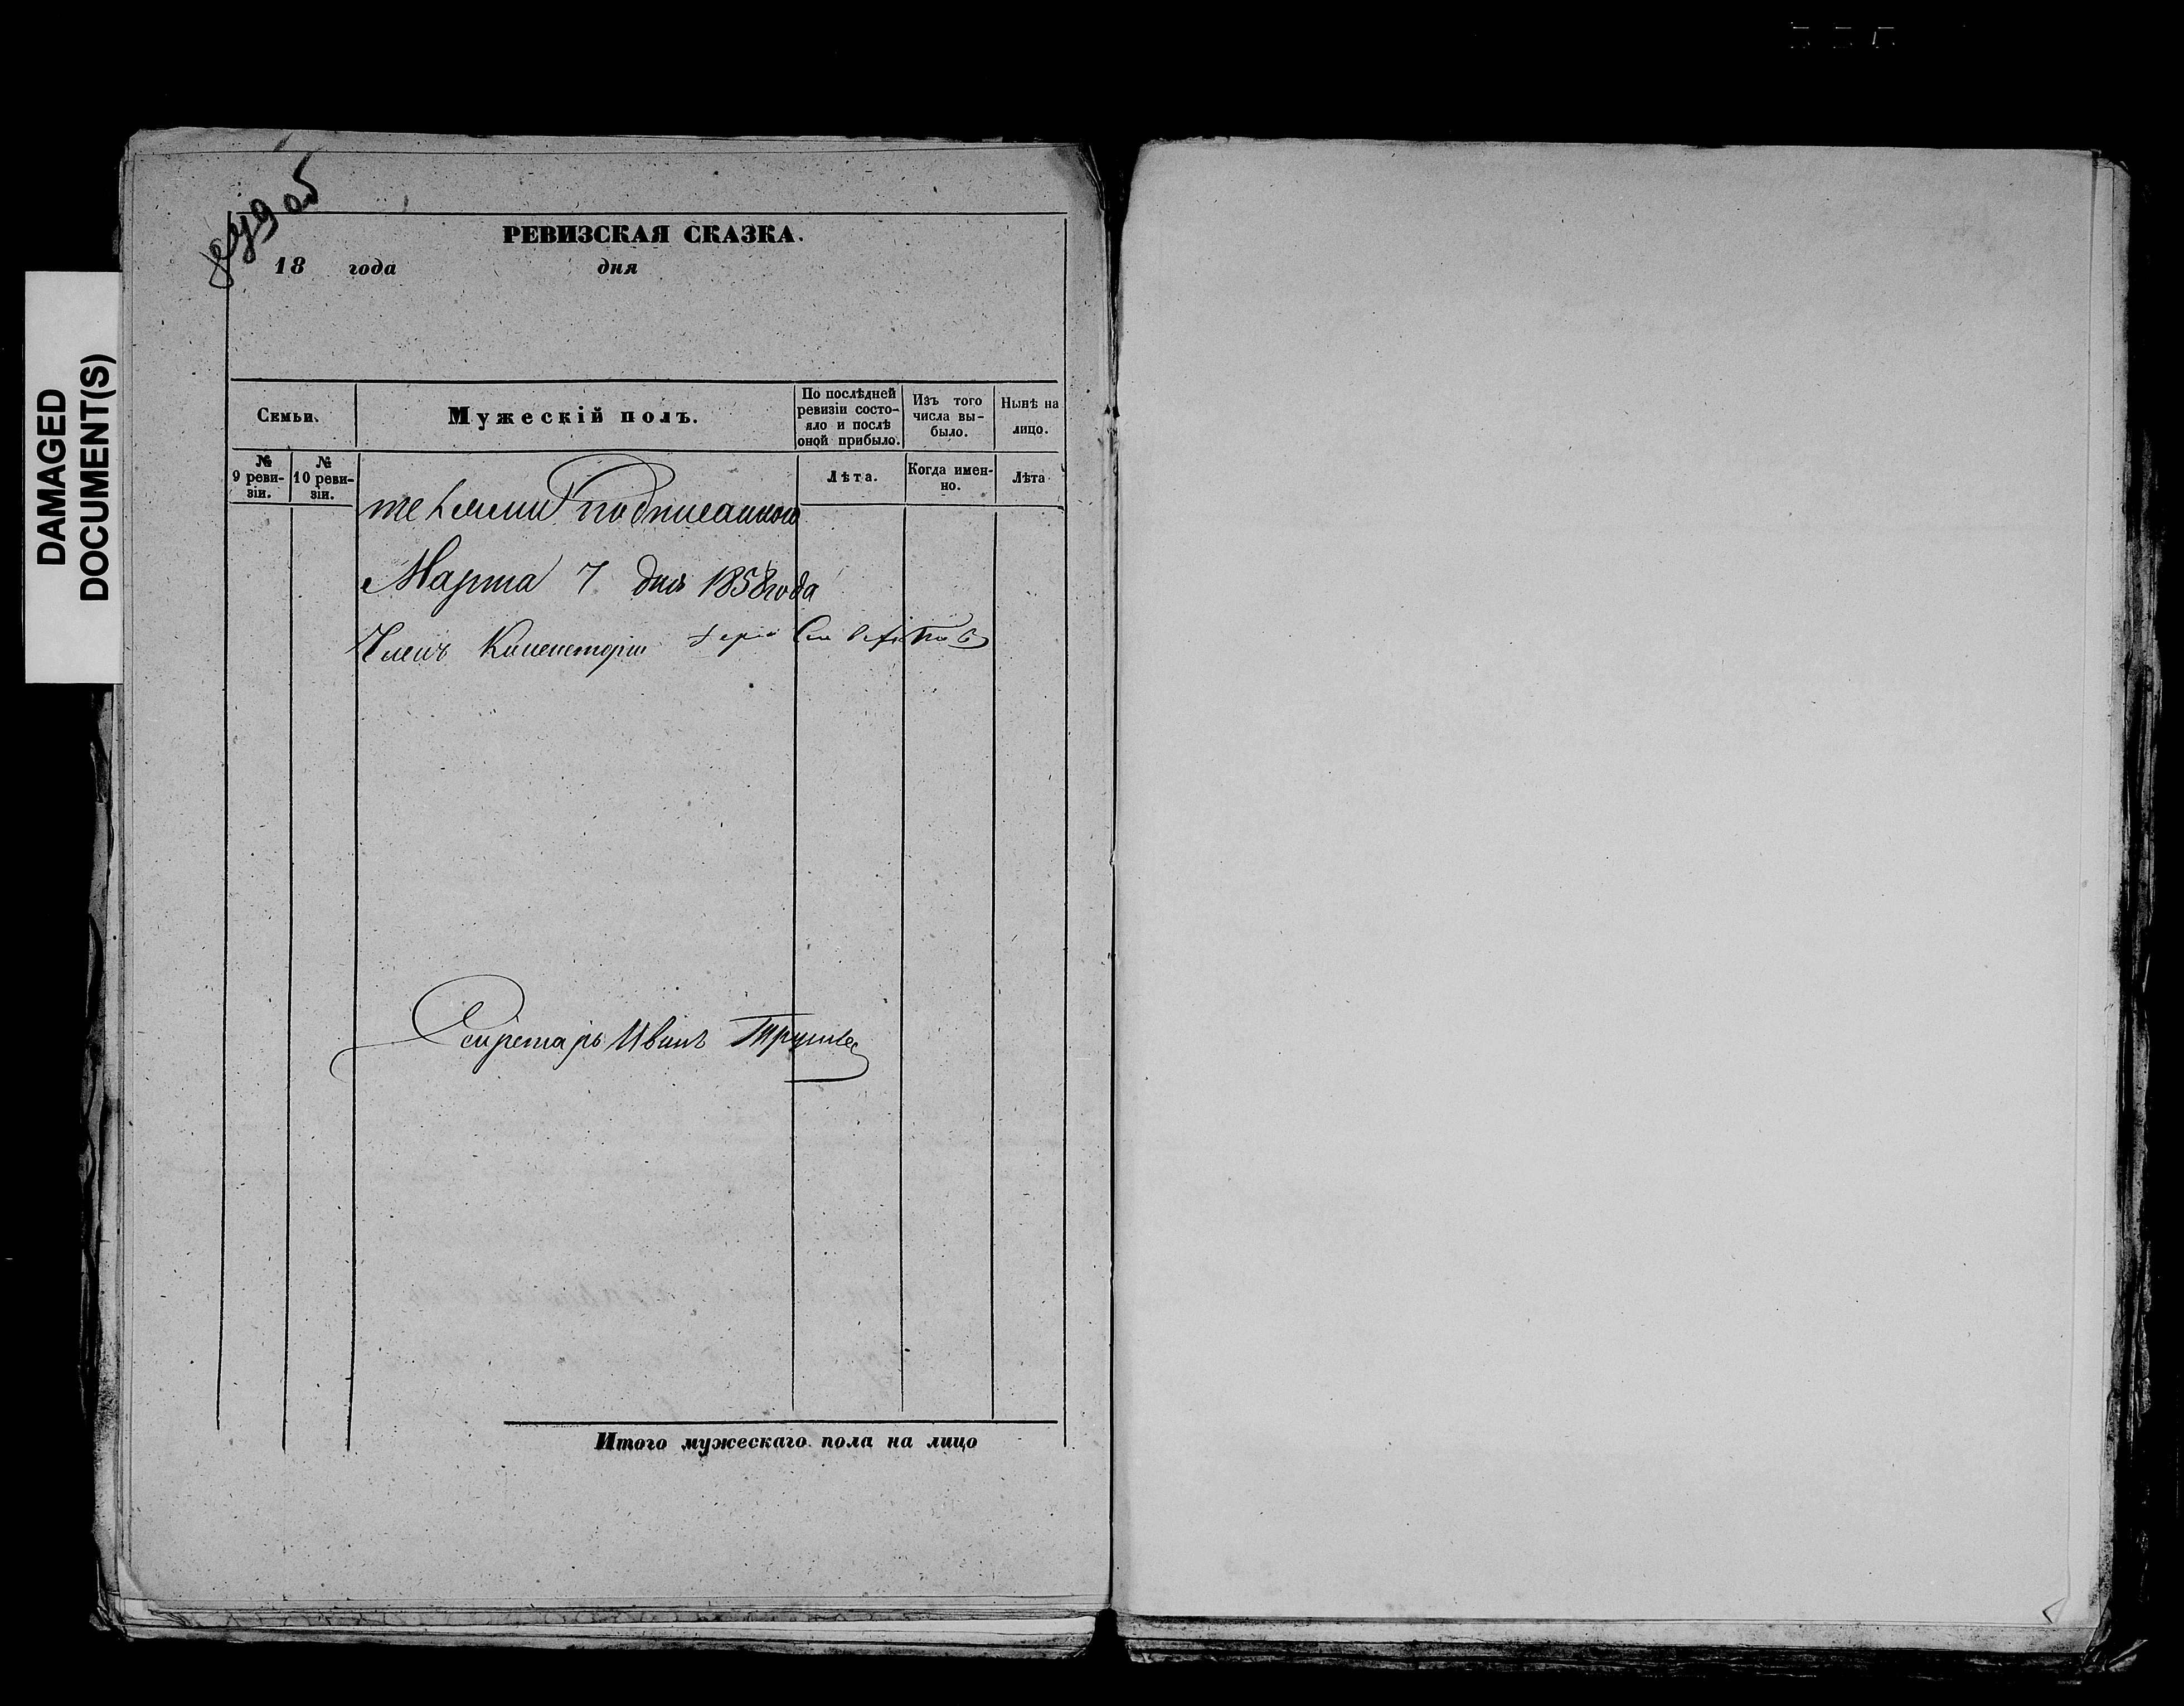 DAMAGED
DOCUMENT(S)
об
РЕВИЗСКАЯ СКАЗКА.
18 года дня
Семьи.
Мужескій полъ.
По послѣдней
ревизіи состо-
яло и послѣ
оной прибыло.
Изъ того
числа вы-
было.
Нынѣ на
лицо.
№
9 реви-
зіи.
№
10 реви-
зіи.
Лѣта.
Когда имен-
но.
Лѣта
подписаннаго
Марта 7 дня 1858 года
Членъ Консисторіи
Секретарь Иванъ
Итого мужескаго пола на лицо